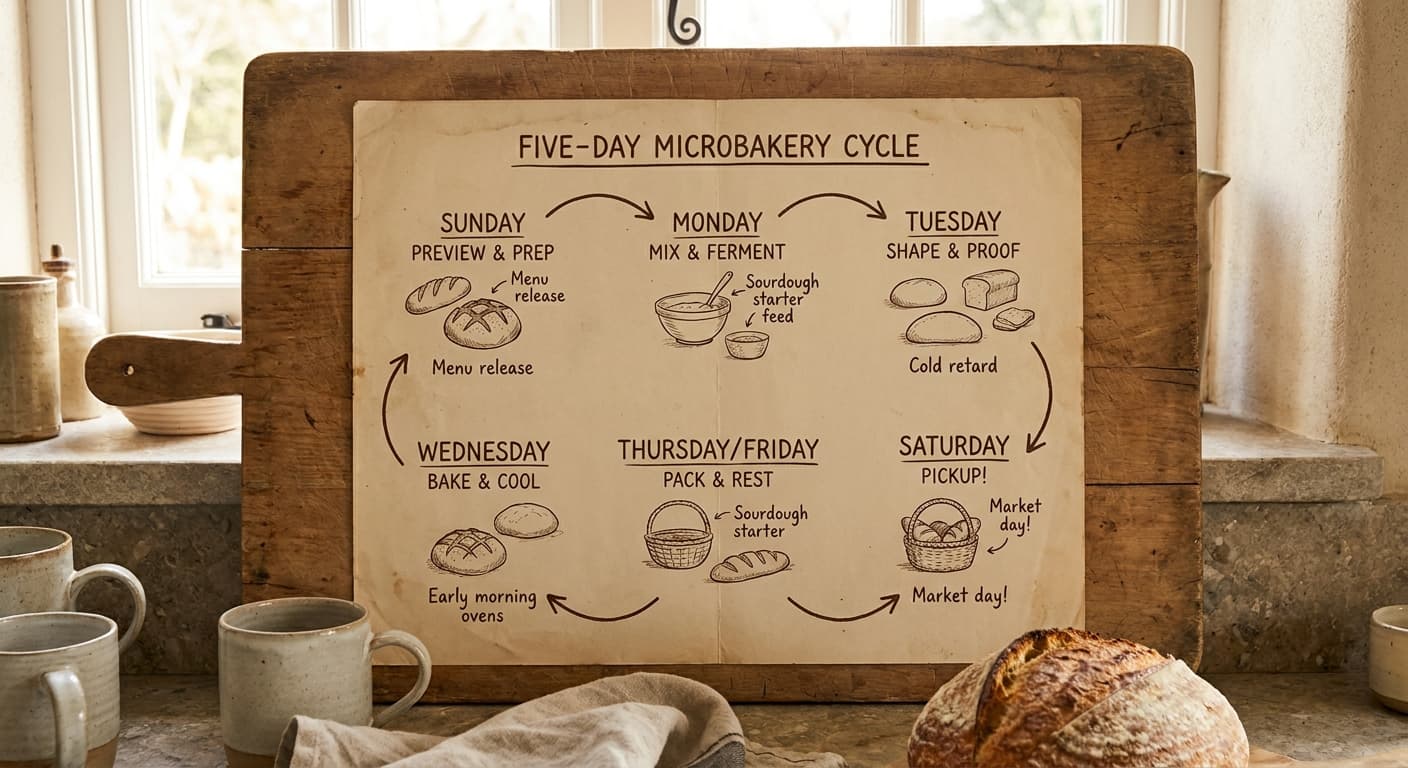 FIVE-DAY MICROBAKERY CYCLE
SUNDAY
PREVIEW & PREP
Menu
release
Menu release
MONDAY
MIX & FERMENT
Sourdough
starter
feed
TUESDAY
SHAPE & PROOF
Cold retard
WEDNESDAY
BAKE & COOL
Early morning
ovens
THURSDAY/FRIDAY
PACK & REST
Sourdough
starter
SATURDAY
PICKUP!
Market
day!
Market day!